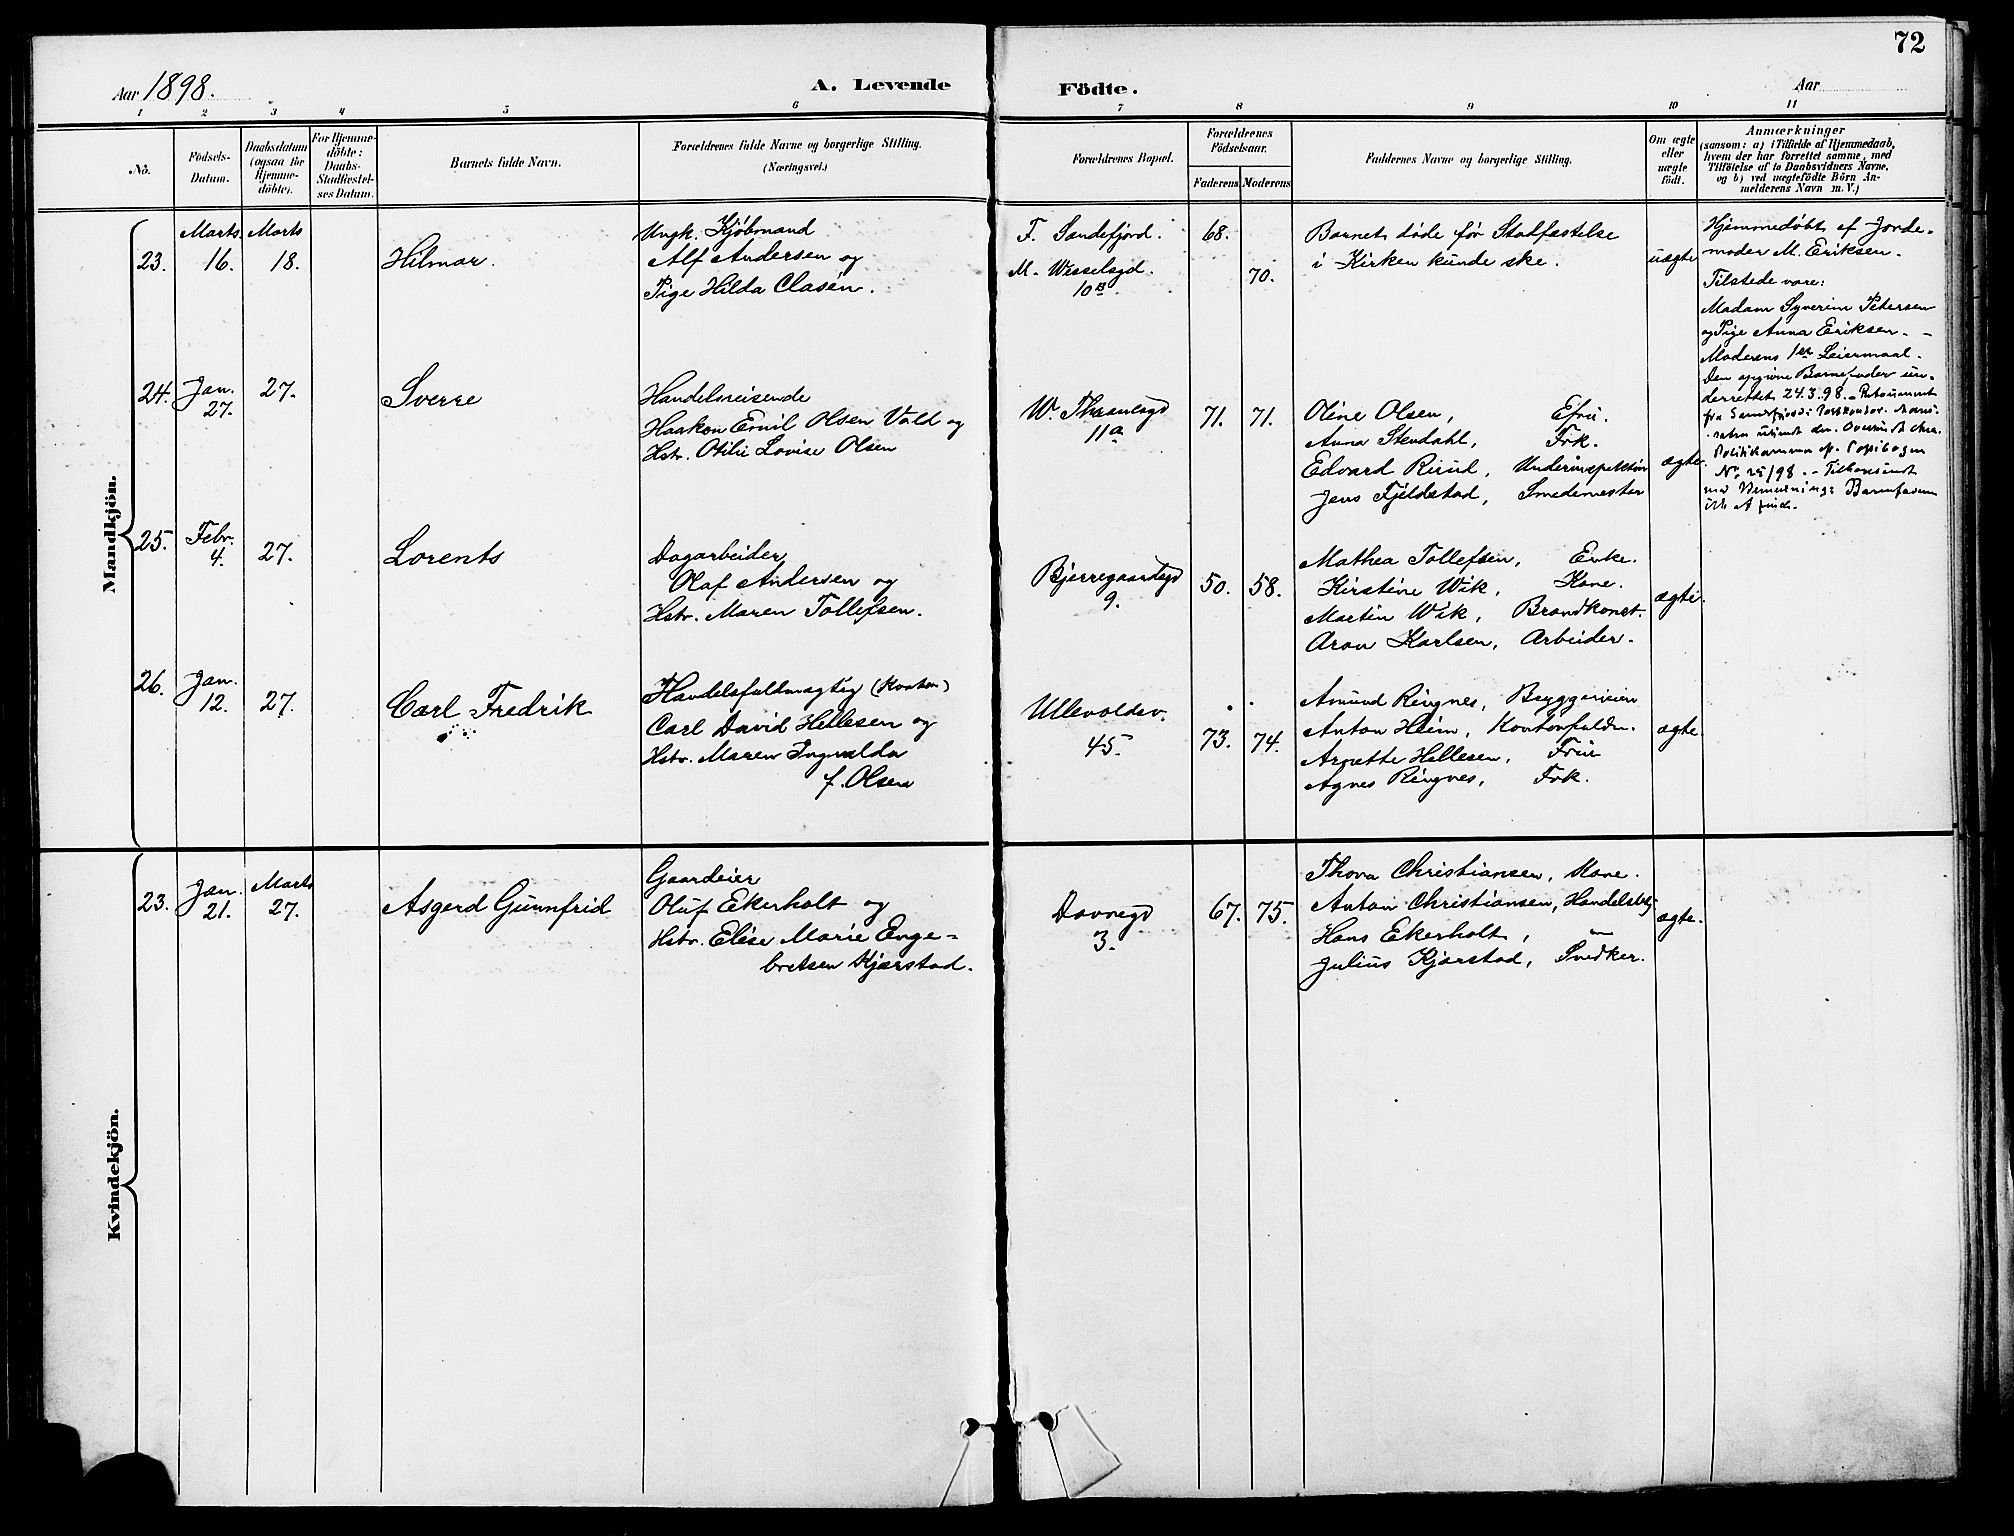 72
Aar 1898.
A. Levende Födte.
Aar
1 2 3 4 5 6 7 8 9 10 11
No.
Födsels-Datum.
Daabsdatum (ogsaa for Hjemmedöbte).
For Hjemmedöbte: Daabs-Stadfæstelses Datum.
Barnets fulde Navn.
Forældrenes fulde Navne og borgerlige Stilling.
(Næringsvei.)
Forældrenes Bopæl.
Forældrenes Födselsaar.
Faderens Moderens
Faddernes Navne og borgerlige Stilling.
Om ægte eller uægte födt.
Anmærkninger
(saasom: a) i Tilfælde af Hjemmedaab,
hvem der har forrettet samme, med
Tilföielse af to Daabsvidners Navne,
og b) ved uægtefödte Börn An-
melderens Navn m. V.)
Mandkjön.
23.
Marts 16.
Marts 18.
Hilmar.
Ungk. Kjøbmand
Alf Andersen og
Pige Hilda Clasén.
F. Sandefjord.
M. Wesselsgd.
10 B
68.
70.
Barnet døde før Stadfæstelse
i Kirken kunde ske.
uægte
Hjemmedøbt af Jorde-
moder M. Eriksen.
Tilstede vare:
Madam Syverine Petersen
og Pige Anna Eriksen. -
Moderens 1ste Leiermaal.
Den opgivne Barnefader un-
derrettet 24.3.98.
24.
Jan. 27.
27.
Sverre
Handelsreisende
Haakon Emil Olsen Vold og
Hstr. Otilie Lovise Olsen
W. Thranesgd
11a
71. 71.
Oline Olsen, Efru.
Anna Stendahl, Frk.
Edvard Ruud, Underinspektør
Jens Fjeldstad, Smedemester
ægte.
25.
Febr. 4.
27.
Lorents
Dagarbeider
Olaf Andersen og
Hstr. Maren Tollefsen.
Bjerregaardsgd
9.
50. 58.
Mathea Tollefsen, Enke.
Kirstine Wik, Kone.
Martin Wik, Brandkonst.
Aron Karlsen, Arbeider.
ægte.
26.
Jan. 12.
27.
Carl Fredrik
Handelsfuldmægtig
Carl David Hellesen og
Hstr. Maren Ingvalda
f. Olsen
Ullevoldsv.
45.
73. 74.
Amund Ringnes, Bryggerieier
Anton Heim, Kontorfuldm.
Arnette Hellesen, Frue
Agnes Ringnes, Frk.
ægte
Kvindekjön.
23.
Jan. 21.
Marts 27.
Asgerd Gunnfrid
Gaardeier
Oluf Ekerholt og
Hstr. Elise Marie Enge=
bretsen Kjærstad.
Dovregd
3.
67. 75.
Thora Christiansen, Kone.
Anton Christiansen,
Hans Ekerholt,
Julius Kjærstad, Snedker.
ægte.